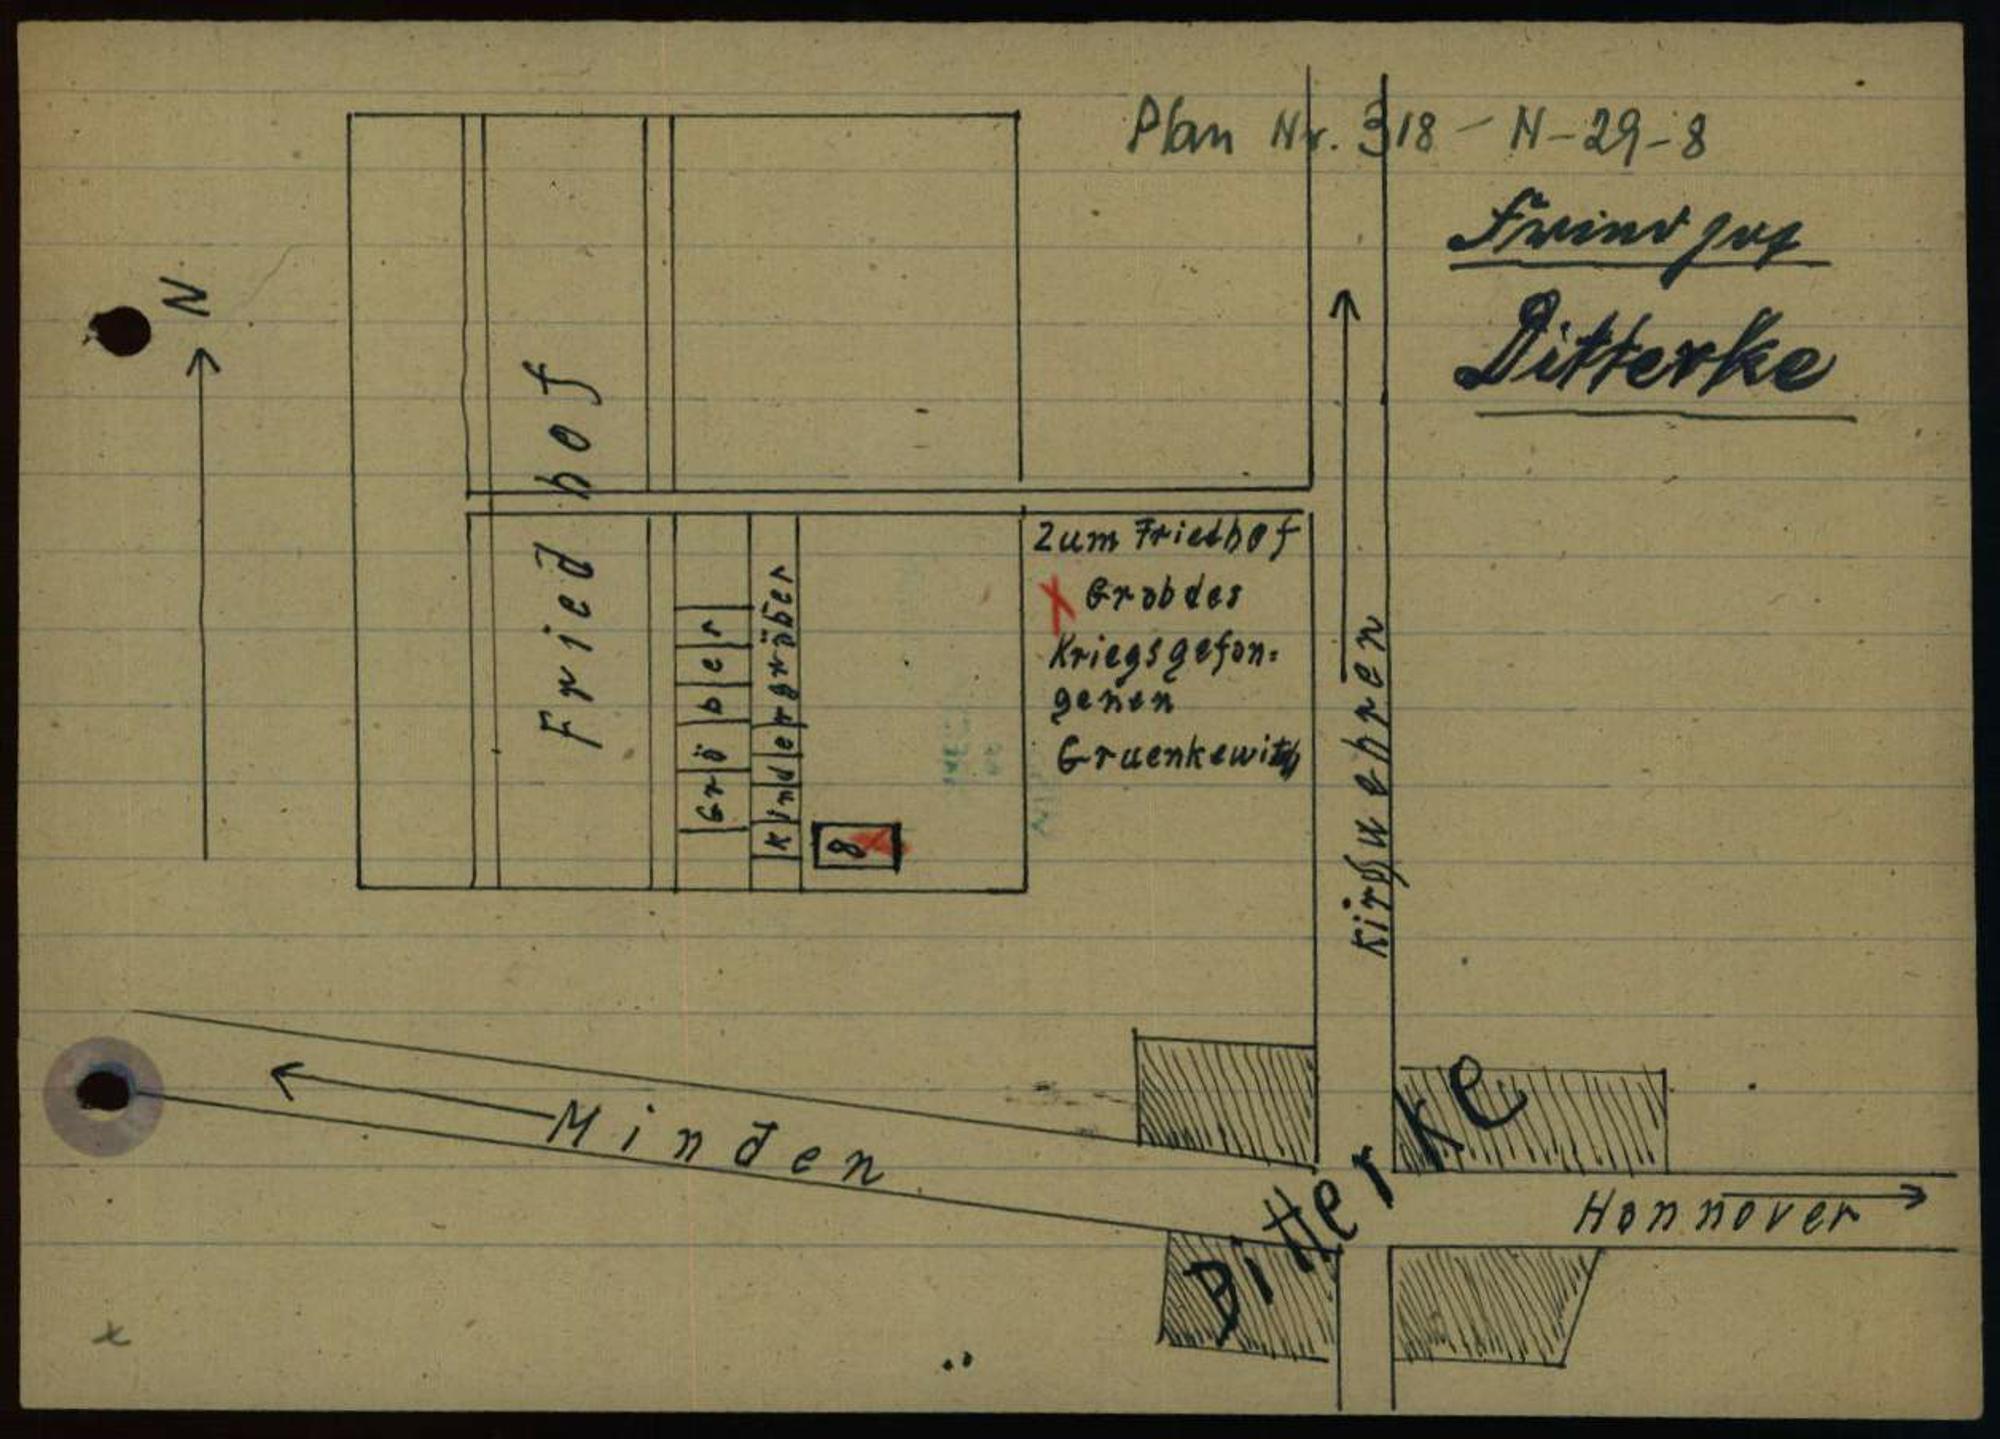 Plan Nr. 318 - N-29-8
Friedhof
Ditterke
N
Friedhof
Zum Friedhof
X Grab des
Kriegsgefan=
genen
Gruenkewitsch
Gräber
Kindergräber
8 X
Kirchwehren
Minden
Hannover
Ditterke
x